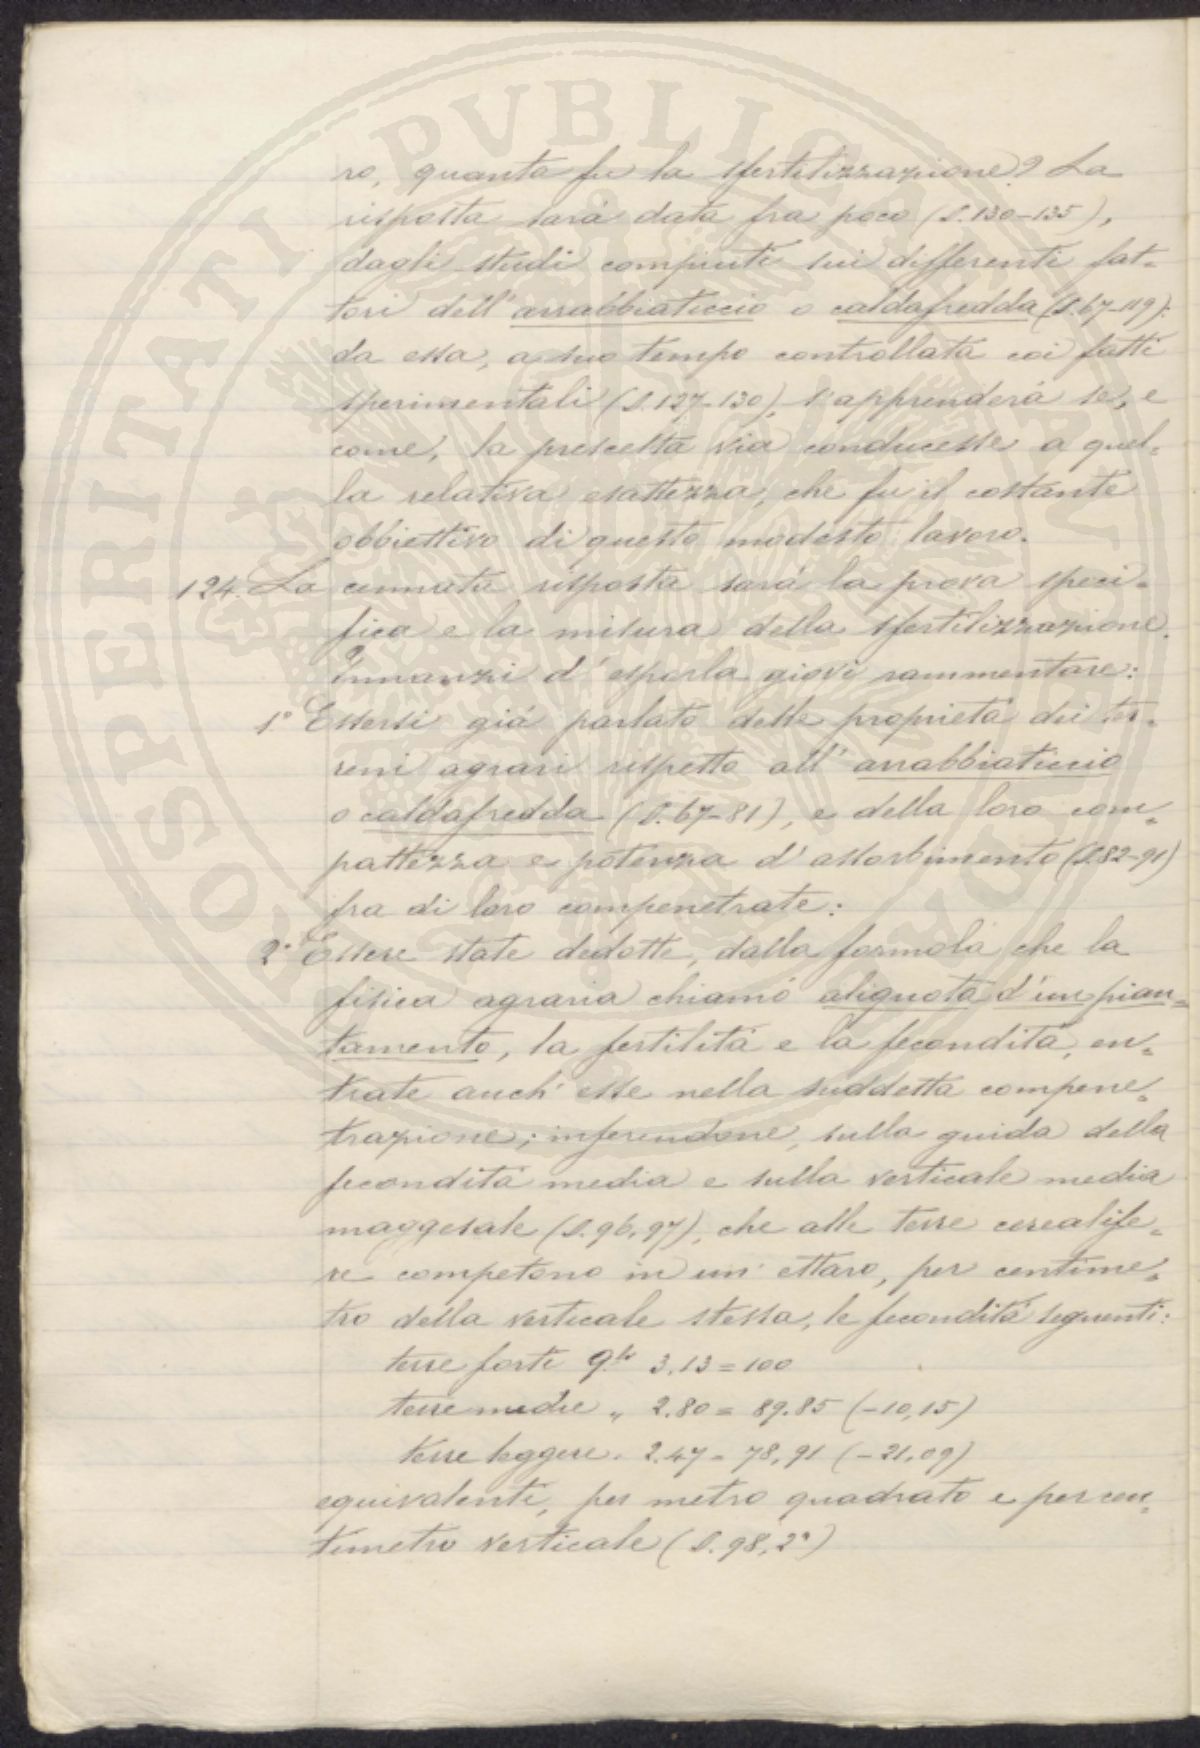 ro, quanta fu la sfertilizzazione? La
risposta sará data fra poco (S. 130-135),
dagli studi compiuti sui differenti fat=
tori dell'arrabbiaticcio o caldafredda (S. 67-119):
da essa, a suo tempo controllata coi fatti
sperimentali (S. 127-130), s'apprenderá se, e
come, la prescelta via conducesse a quel=
la relativa esattezza, che fu il costante
obbiettivo di questo modesto lavoro.
124. La cennata risposta sará la prova speci=
fica e la misura della sfertilizzazione.
Innanzi d'esporla giovi rammentare:
1° Essersi giá parlato delle proprietá dei ter=
reni agrari rispetto all'arrabbiaticcio
o caldafredda (S. 67-81), e della loro com=
pattezza e potenza d'assorbimento (S. 82-91)
fra di loro compenetrate:
2° Essere state dedotte, dalla formola che la
fisica agraria chiamó aliquota d'un pian=
tamento, la fertilitá e la feconditá, en=
trate anch'esse nella suddetta compene=
trazione; inferendone, sulla guida della
feconditá media e sulla verticale media
maggesale (S. 96, 97), che alle terre cerealife=
re competono in un'ettaro, per centime=
tro della verticale stessa, le feconditá seguenti:
terre forti q.li 3.13 = 100
terre medie „ 2.80 = 89.85 (-10,15)
terre leggere. 2.47 = 78,91 (-21,09)
equivalenti, per metro quadrato e per cen=
timetro verticale (S. 98, 2°)
PROSPERITATI PVBLICAE